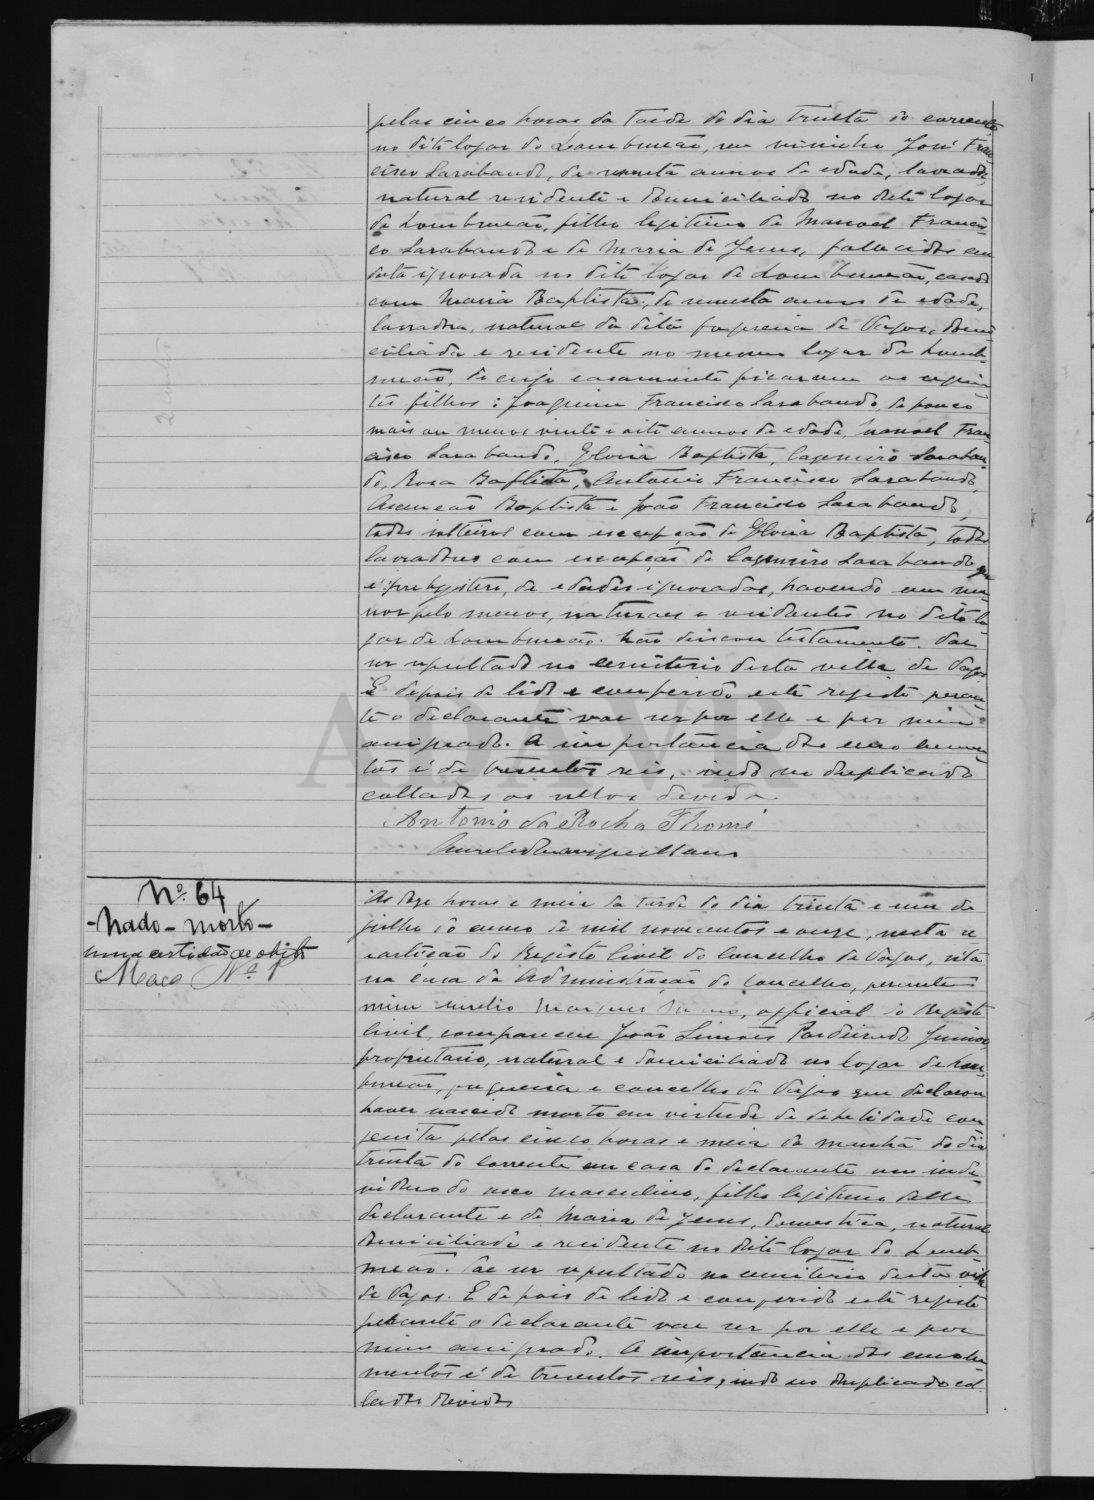 pelas cinco horas da tarde do dia trinta do corrente
no dito logar do Lombomeão, um visinho José Fran-
cisco Sarabando, de sessenta annos de edade, lavrador,
natural residente e domiciliado no dito logar
de Lombomeão, filho legitimo de Manoel Francis-
co Sarabando e de Maria de Jesus, fallecidos em
data ignorada no dito logar de Lombomeão, casado
com Maria Baptista, de sessenta annos de edade,
lavradora, natural da dita freguesia de Vagos, domi-
ciliada e residente no mesmo logar de Lombo-
meão, de cujo casamento ficaram os seguin-
tes filhos: Joaquim Francisco Sarabando, de pouco
mais ou menos vinte e oito annos de edade, Manoel Fran-
cisco Sarabando, Gloria Baptista, Casemiro Saraban-
do, Rosa Baptista, Antonio Francisco Sarabando,
Ascenção Baptista e João Francisco Sarabando,
todos solteiros com excepção de Gloria Baptista, todos
lavradores com excepção de Casemiro Sarabando que
é presbytero, de edades ignoradas, havendo um me-
nor pelo menos, naturaes e residentes no dito lo-
gar de Lombomeão. Não deixou testamento. Vae
ser sepultado no cemiterio desta villa de Vagos
E depois de lido e conferido este registo peran-
te o declarante vae ser por elle e por mim
assignado. A importancia dos emolumen-
tos é de trezentos reis, indo no duplicado
collados os sellos devidos.
Antonio da Rocha Thomé
Aurelio Marques Mano
Nº 64
- Nado - morto -
uma certidão de obito
Maço Nº 1
As doze horas e meia da tarde do dia trinta e um de
julho do anno de mil novecentos e onze, nesta re-
partição do Registo Civil do Concelho de Vagos, sita
na casa da Administração do Concelho, perante
mim Aurelio Marques Mano, official do Registo
Civil, compareceu João Simões Pardeiro do Junior
proprietario, natural e domiciliado no logar de Lom-
bomeão, freguesia e concelho de Vagos que declarou
haver nascido morto em virtude de debelidade con-
genita pelas cinco horas e meia da manhã do dia
trinta do corrente em casa do declarante um indi-
viduo do sexo masculino, filho legitimo delle
declarante e de Maria de Jesus, domestica, natural
domiciliada e residente no dito logar do Lombo-
meão. Vae ser sepultado no cemiterio desta villa
de Vagos. E depois de lido e conferido este registo
perante o declarante vae ser por elle e por
mim assignado. A importancia dos emolu-
mentos é de trezentos reis, indo no duplicado col-
lados devidos
ADAVR